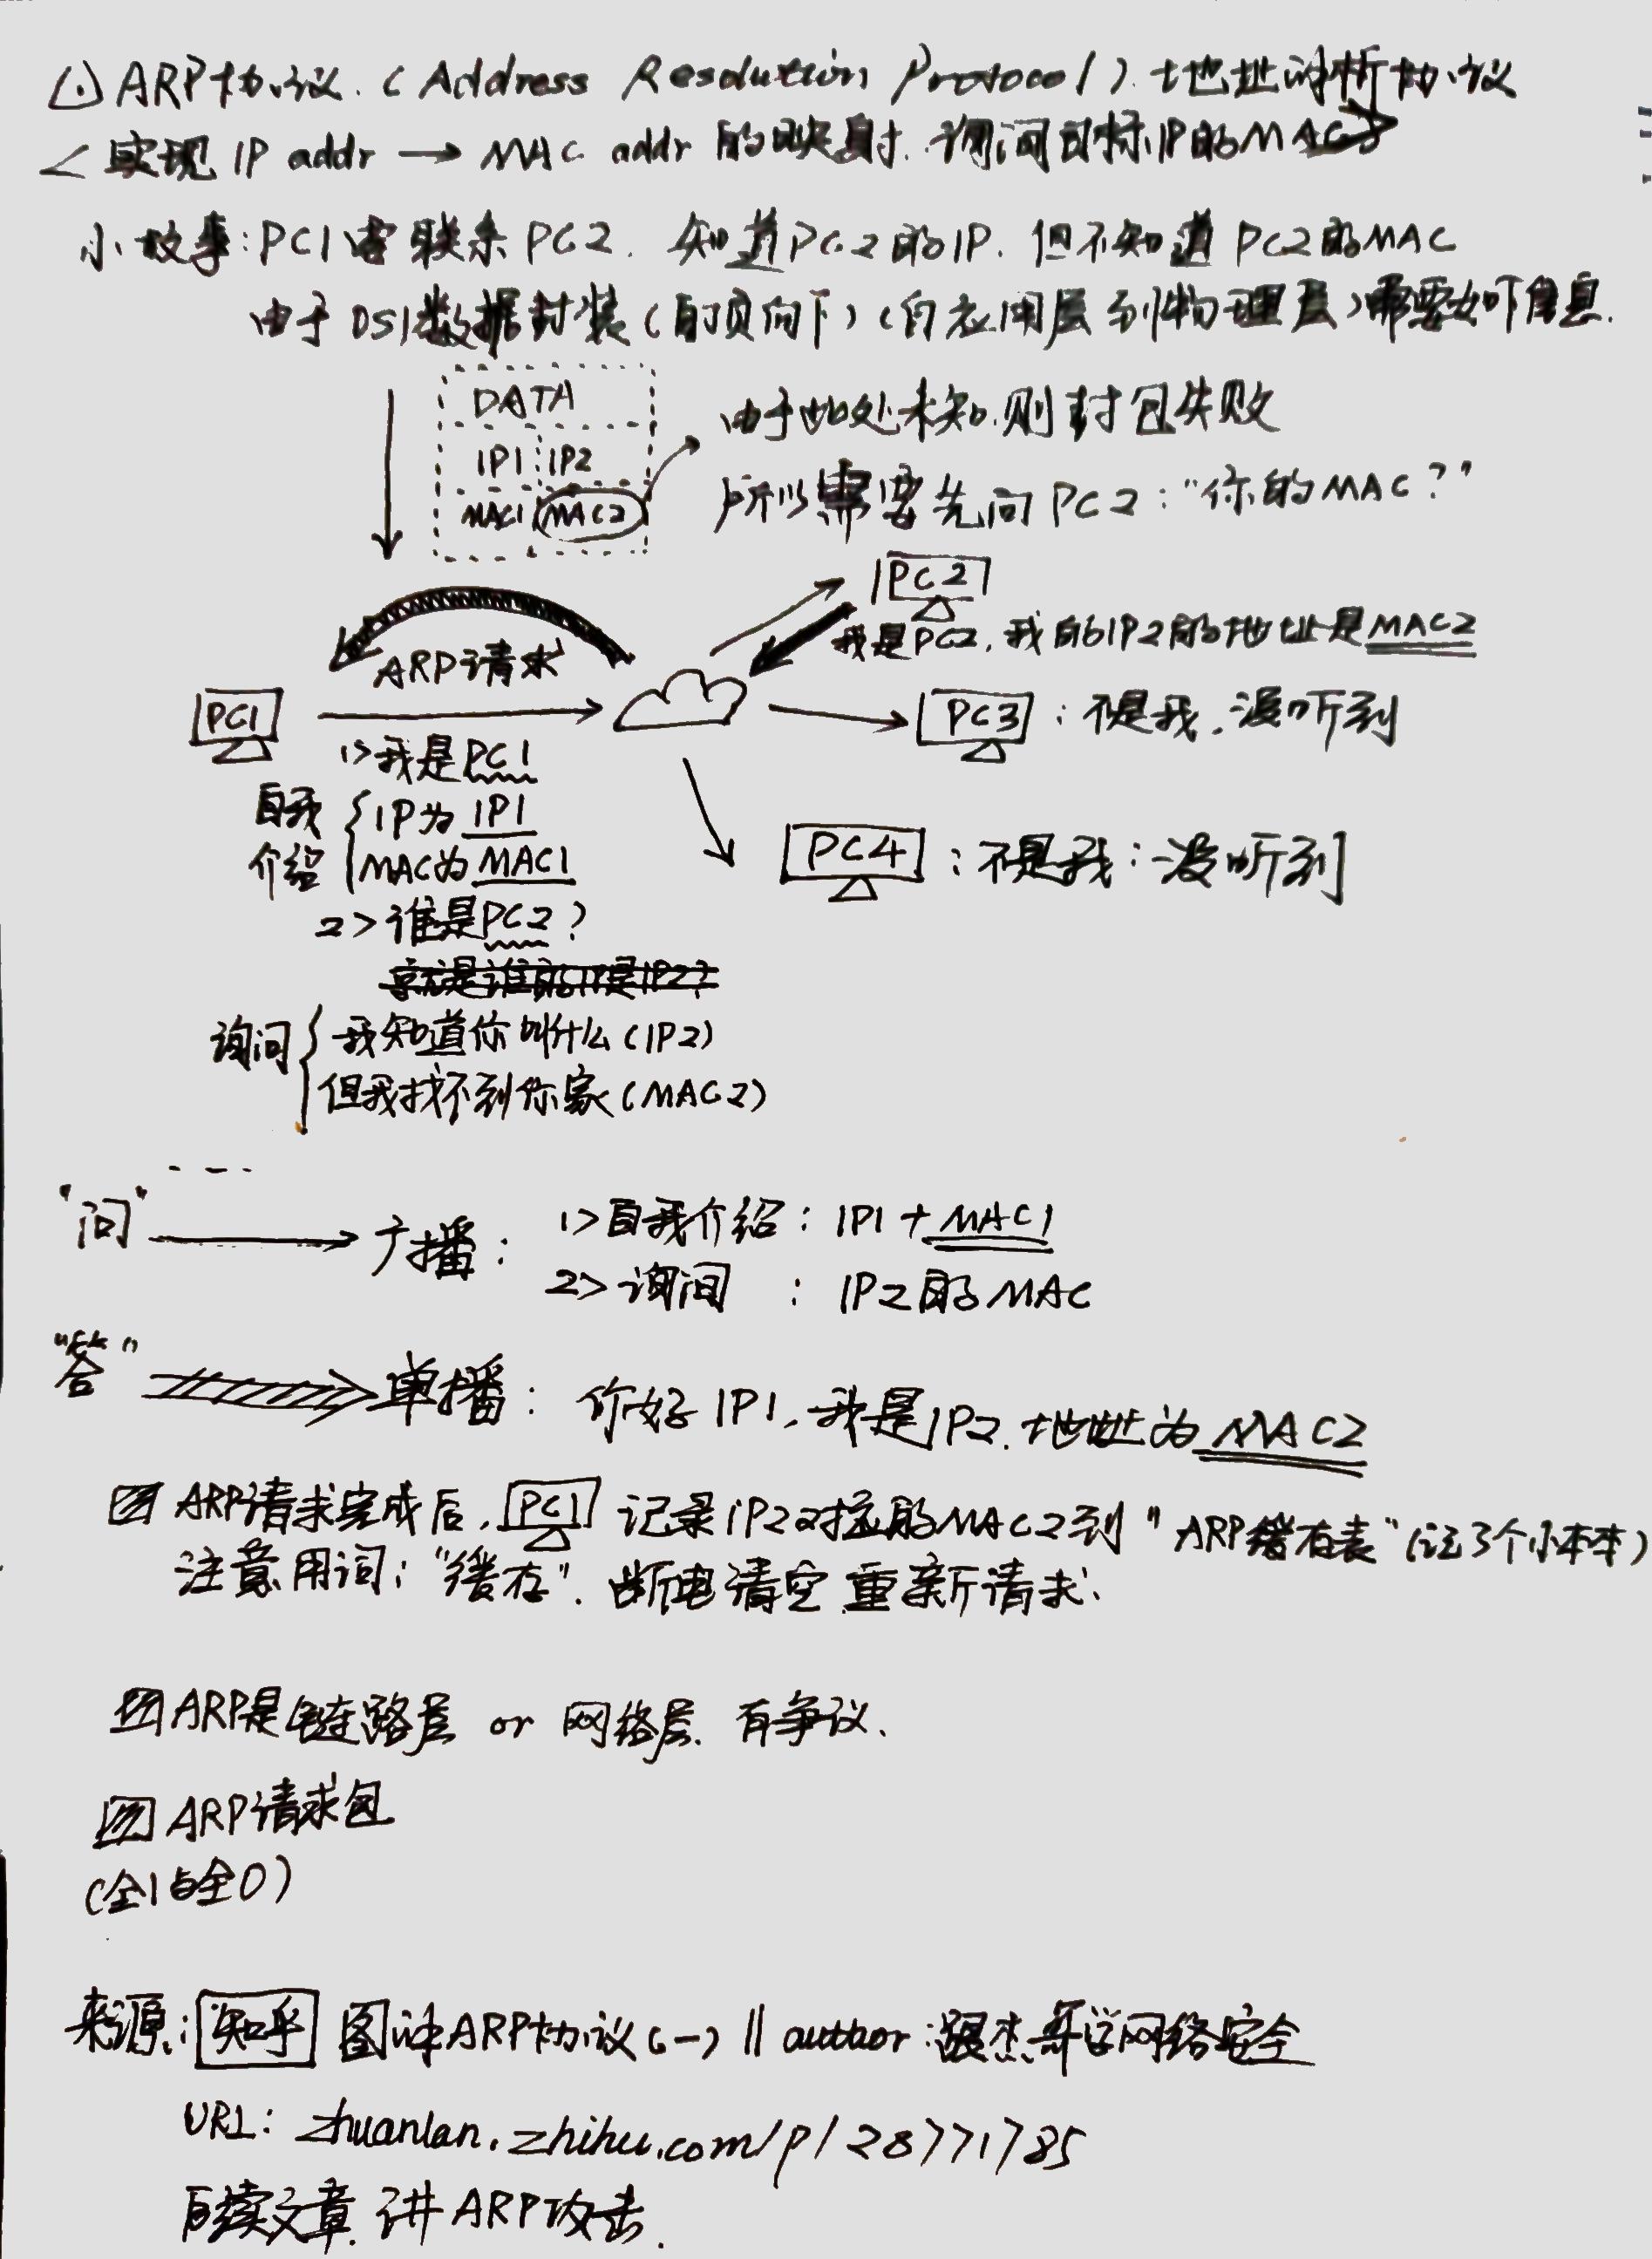 ARP协议.(Address Resolution Protocol).地址解析协议
<实现 IP addr → MAC addr 的映射. 询问目标IP的MAC>
小故事:PC1 联系 PC2. 知道PC2的IP. 但不知道 PC2的MAC
由于OSI数据封装(自顶向下)(自应用层到物理层)需要如下信息.
DATA
IP1 IP2
MAC1 MAC2
由于此处未知.则封包失败
所以需要先问PC2:"你的MAC?"
PC2
我是PC2,我的IP2的地址是MAC2
ARP请求
PC1
PC3:不是我.没听到
1>我是PC1
自我介绍
IP为IP1
MAC为MAC1
PC4:不是我:没听到
2>谁是PC2?
询问
我知道你叫什么(IP2)
但我找不到你家(MAC2)
"问" → 广播:
1>自我介绍:IP1+MAC1
2>询问 : IP2的MAC
"答" 单播: 你好IP1,我是IP2.地址为MAC2
ARP请求完成后,PC1 记录IP2对应的MAC2到"ARP缓存表"(记了个小本本)
注意用词:"缓存".断电清空.重新请求.
ARP是链路层 or 网络层. 有争议.
ARP请求包
(全1与全0)
来源:知乎 图详ARP协议(一) || author:跟杰哥学网络安全
URL: zhuanlan.zhihu.com/p/28771785
后续文章.讲ARP攻击.